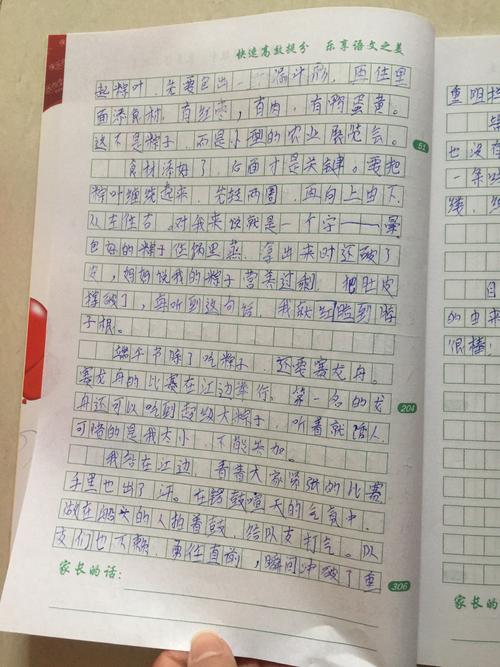 快速高效提分 乐享语文之美
起粽叶，先要包出一个漏斗形，再往里
面添食材，有红枣，有肉，有鸭蛋黄。
这不是粽子，而是小型的农业展览会。
食材添好了，后面才是关键。要把
粽叶缠绕起来，先轻两周，再向上由下，
从左住右。对我来说就是一个字——晕
包好的粽子住锅里蒸，拿出来时还破了
皮，妈妈说我的粽子营养过剩，把肚皮
撑破了，每听到这句话，我就红脸到脖
子根。
端午节除了吃粽子，还要赛龙舟。
赛龙舟的比赛在江边举行。第一名的龙
舟还可以吃到超级大粽子，听着就诱人，
可惜的是我太小，不能参加。
我站在江边，看着大家紧张的比赛
手里也出了汗。在锣鼓喧天的气氛中，
做在船的人拍着鼓，给队友打气。队
友们也不赖，勇往直前，瞬间冲破了重
家长的话：
51
204
306
重阻拦
也没有
一条
线，
的由来
很棒！
家长的